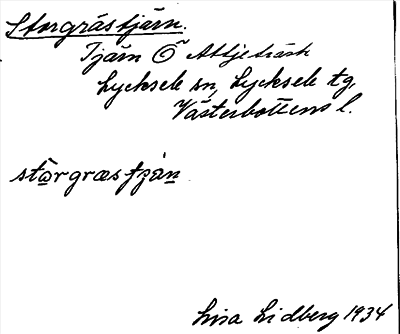 Storgrästjärn.
Tjärn Ö Attjeträsk
Lycksele sn, Lycksele tg,
Västerbottens l.
Lisa Lidberg 1934